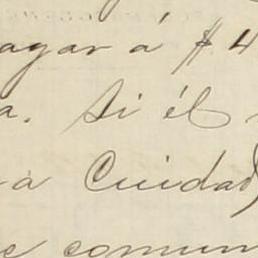 agar á $ 4
a. Si él
a Cuidad)
e comun